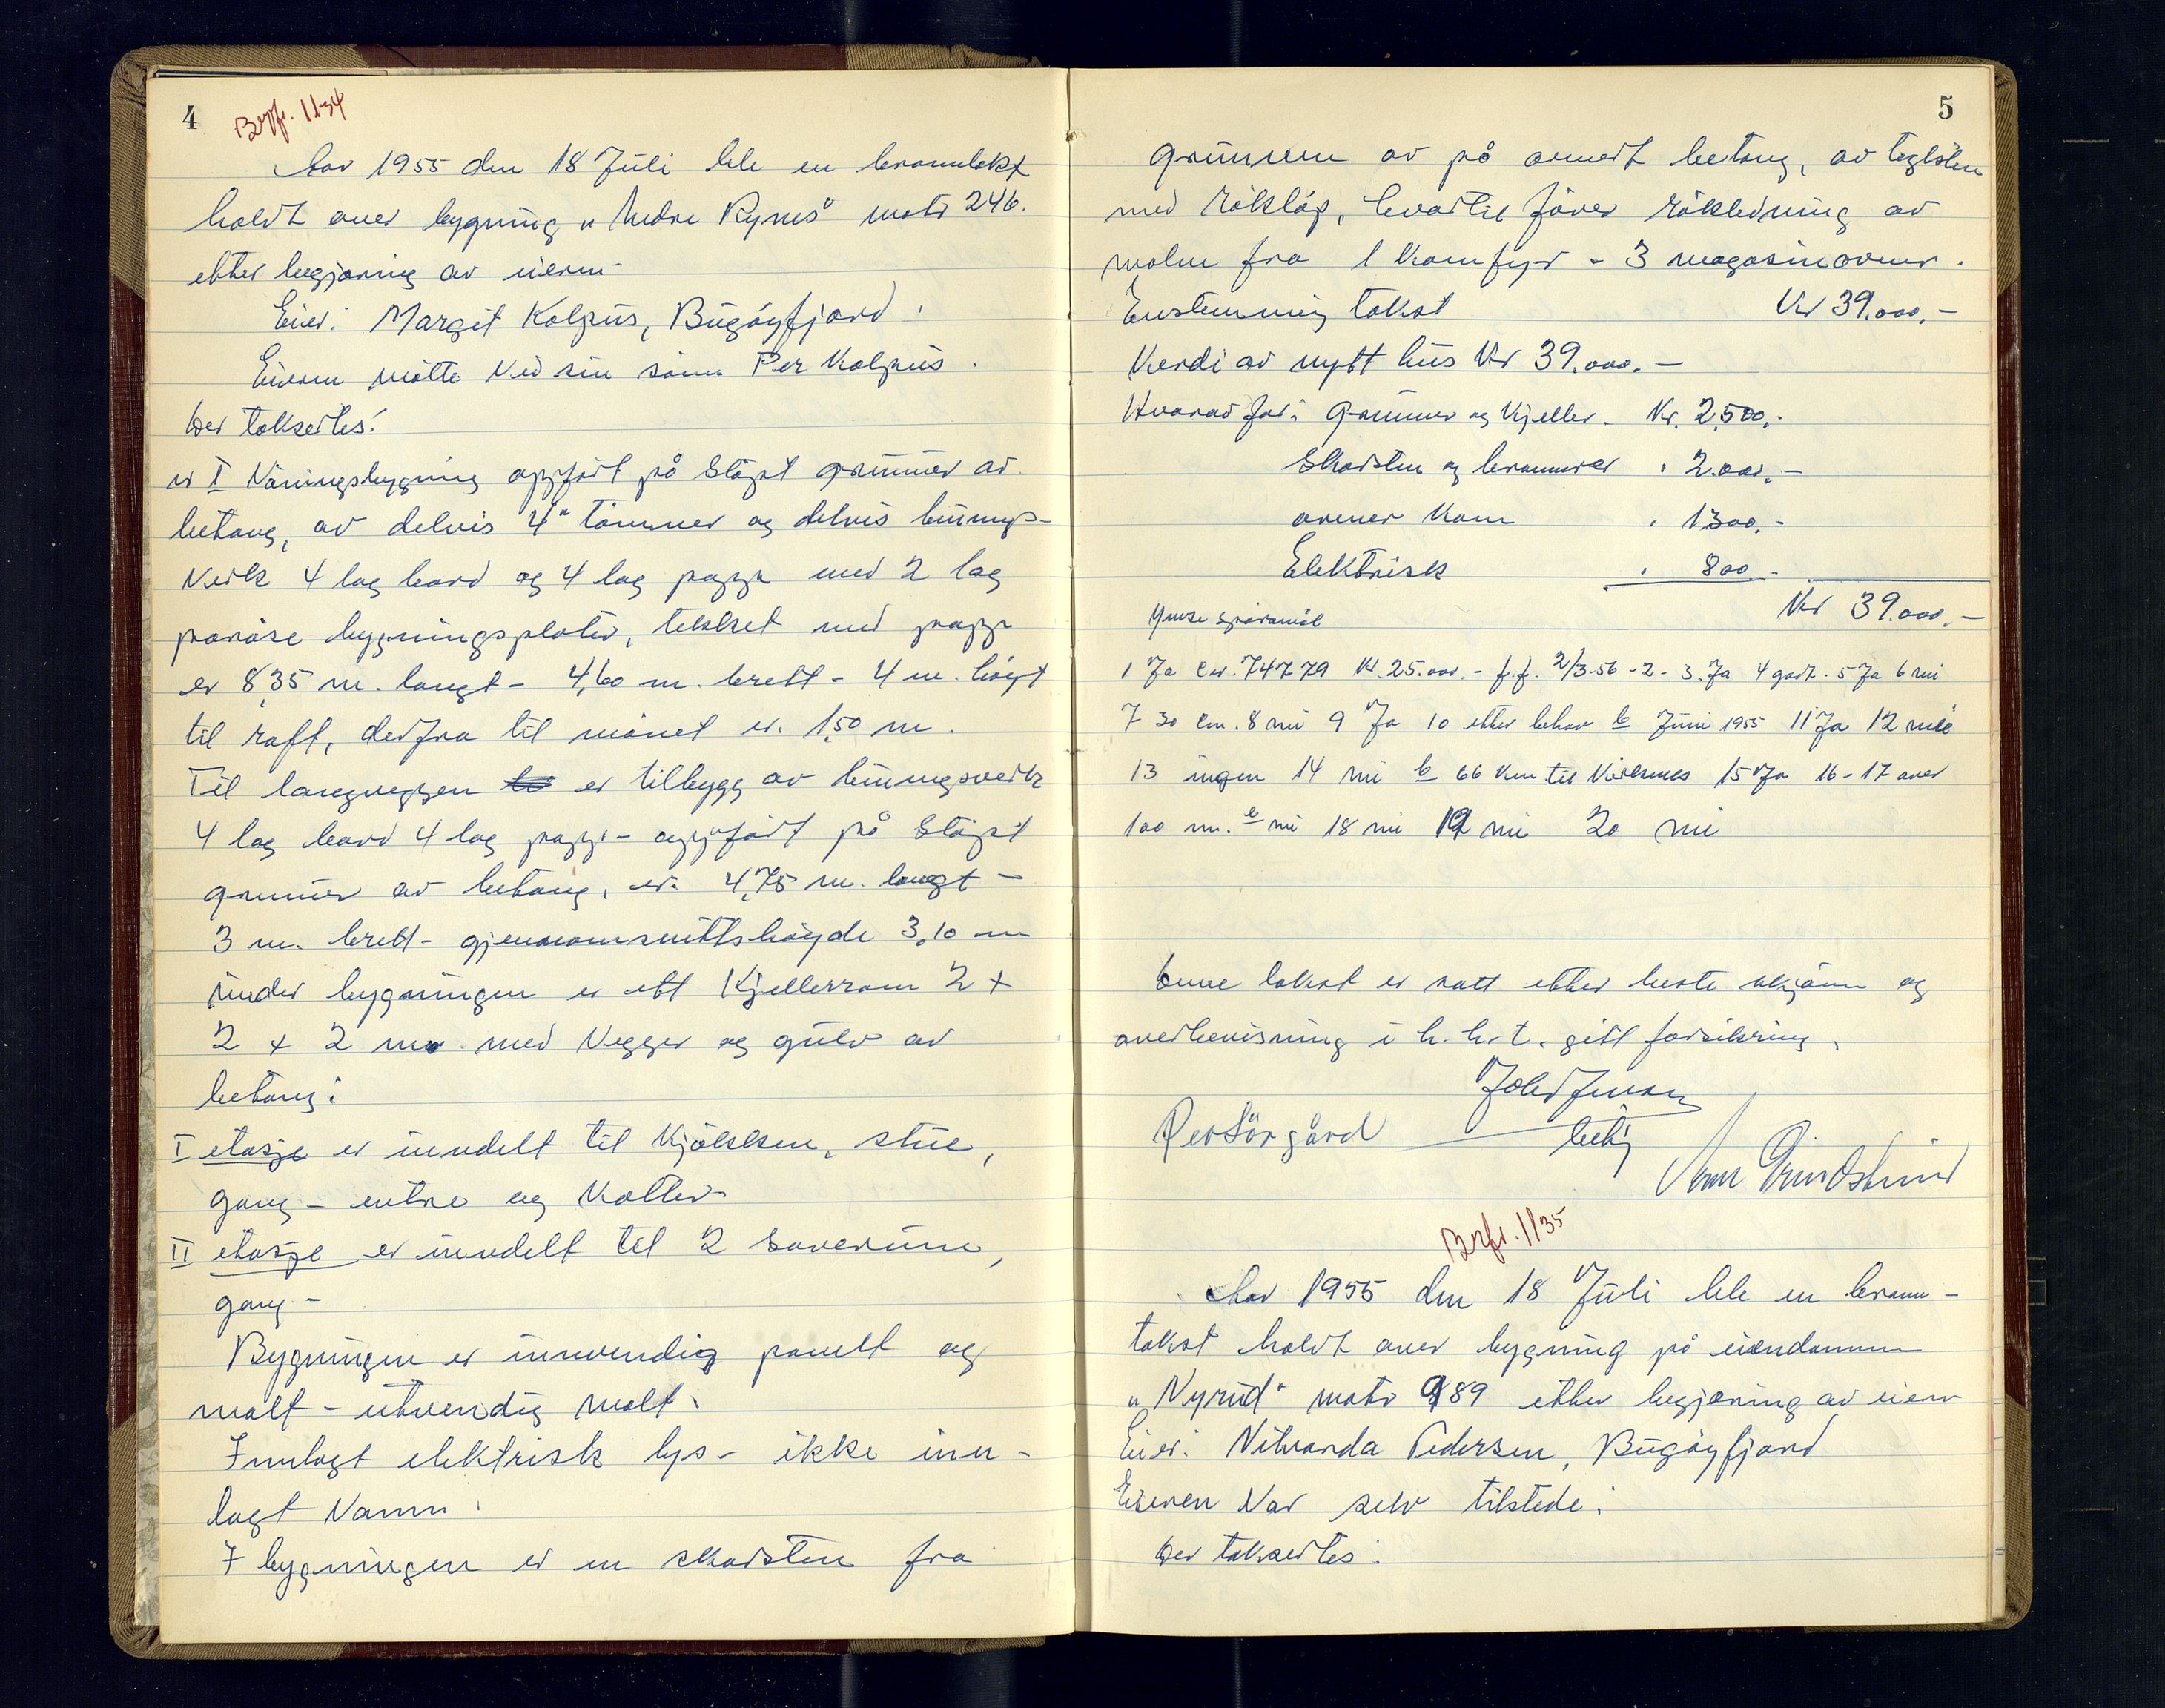 4
Brpfr. 11-34
Aar 1955 den 18 Juli ble en brandtakst
holdt over bygning „Nedre Rynes“ matr 246.
etter begjæring av eieren
Eier: Margit Kolpus, Bugøyfjord.
Eieren møtte ved sin sønn Per Kolpus.
Der takseres:
er I Våningsbygning oppført på støpt grunnmur av
betong, av delvis 4" tømmer og delvis binnings-
verk 4 lag bord og 4 lag papp med 2 lag
porøse bygningsplater, tekket med papp
er 8,35 m. langt - 4,60 m. brett - 4 m. høgt
til raft, derfra til mønet er. 1,50 m.
Til langveggen er tilbygg av binningsverk
4 lag bord 4 lag papp - oppført på støpt
grunnmur av betong, er. 4,75 m. langt -
3 m. brett - gjennomsnittshøyde 3,10 m
under bygningen er ett Kjellerrom 2 +
2 + 2 m. med Vegger og gulv av
betong.
I etasje er inndelt til Kjøkken, stue,
gang - entre og Kott
II etasje er inndelt til 2 Soverum,
gang -
Bygningen er innvendig panelt og
malt - utvendig malt.
Innlagt elektrisk lys - ikke inn-
lagt Vann.
I bygningen er en skorsten fra
5
grunnen av på armert betong, av teglsten
med røkløp, hvortil fører røkledning av
malm fra 1 Komfyr - 3 magasinovner.
Enstemmig takst Kr 39.000.-
Verdi av nytt hus Kr 39.000.-
Hvorav for: Grunnmur og Kjeller. Kr. 2.500.-
Skorsten og brannmur " 2.000.-
ovner Kom " 1300.-
Elektrisk " 800.-
Kr 39.000.-
Ymse spørsmål
1 Ja Nr. 74779 Kr. 25.000.- f.f. 2/3-56 - 2 - 3. Ja 4 godt. 5 Ja 6 nei
7 30 cm. 8 nei 9 Ja 10 etter behov b Juni 1955 11 Ja 12 nei
13 ingen 14 nei b 66 Km til Kirkenes 15 Ja 16 - 17 over
100 m. e nei 18 nei 19 nei 20 nei
Denne takst er satt etter beste skjønn og
overbevisning i h. h. t. gitt forsikring.
Per Sørgård
Brpfr. 1135
Aar 1955 den 18 Juli ble en brann-
takst holdt over bygning på eiendommen
„Nyrud“ matr 989 etter begjæring av eier
Eier: Nilvanda Pedersen, Bugøyfjord
Eieren Var selv tilstede.
Der takseres: